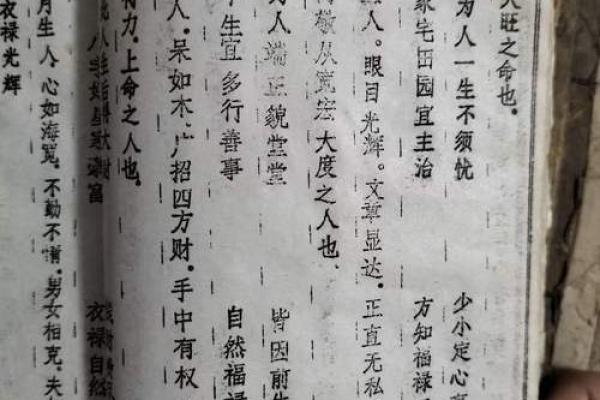 旺之命也。
为人一生不须忧 少小定心
家宅田园宜主治 方知福禄
人。眼目光辉。文章显达。正直无私
敬从宽宏大度之人也
人端正貌堂堂 皆因前生
生宜多行善事 自然福禄
人。呆如木广招四方财。手中有权
有力。上命之人也。
富 衣禄自然
月生人。心如海宽。不勤不惰。男女相克。夫
衣禄光辉